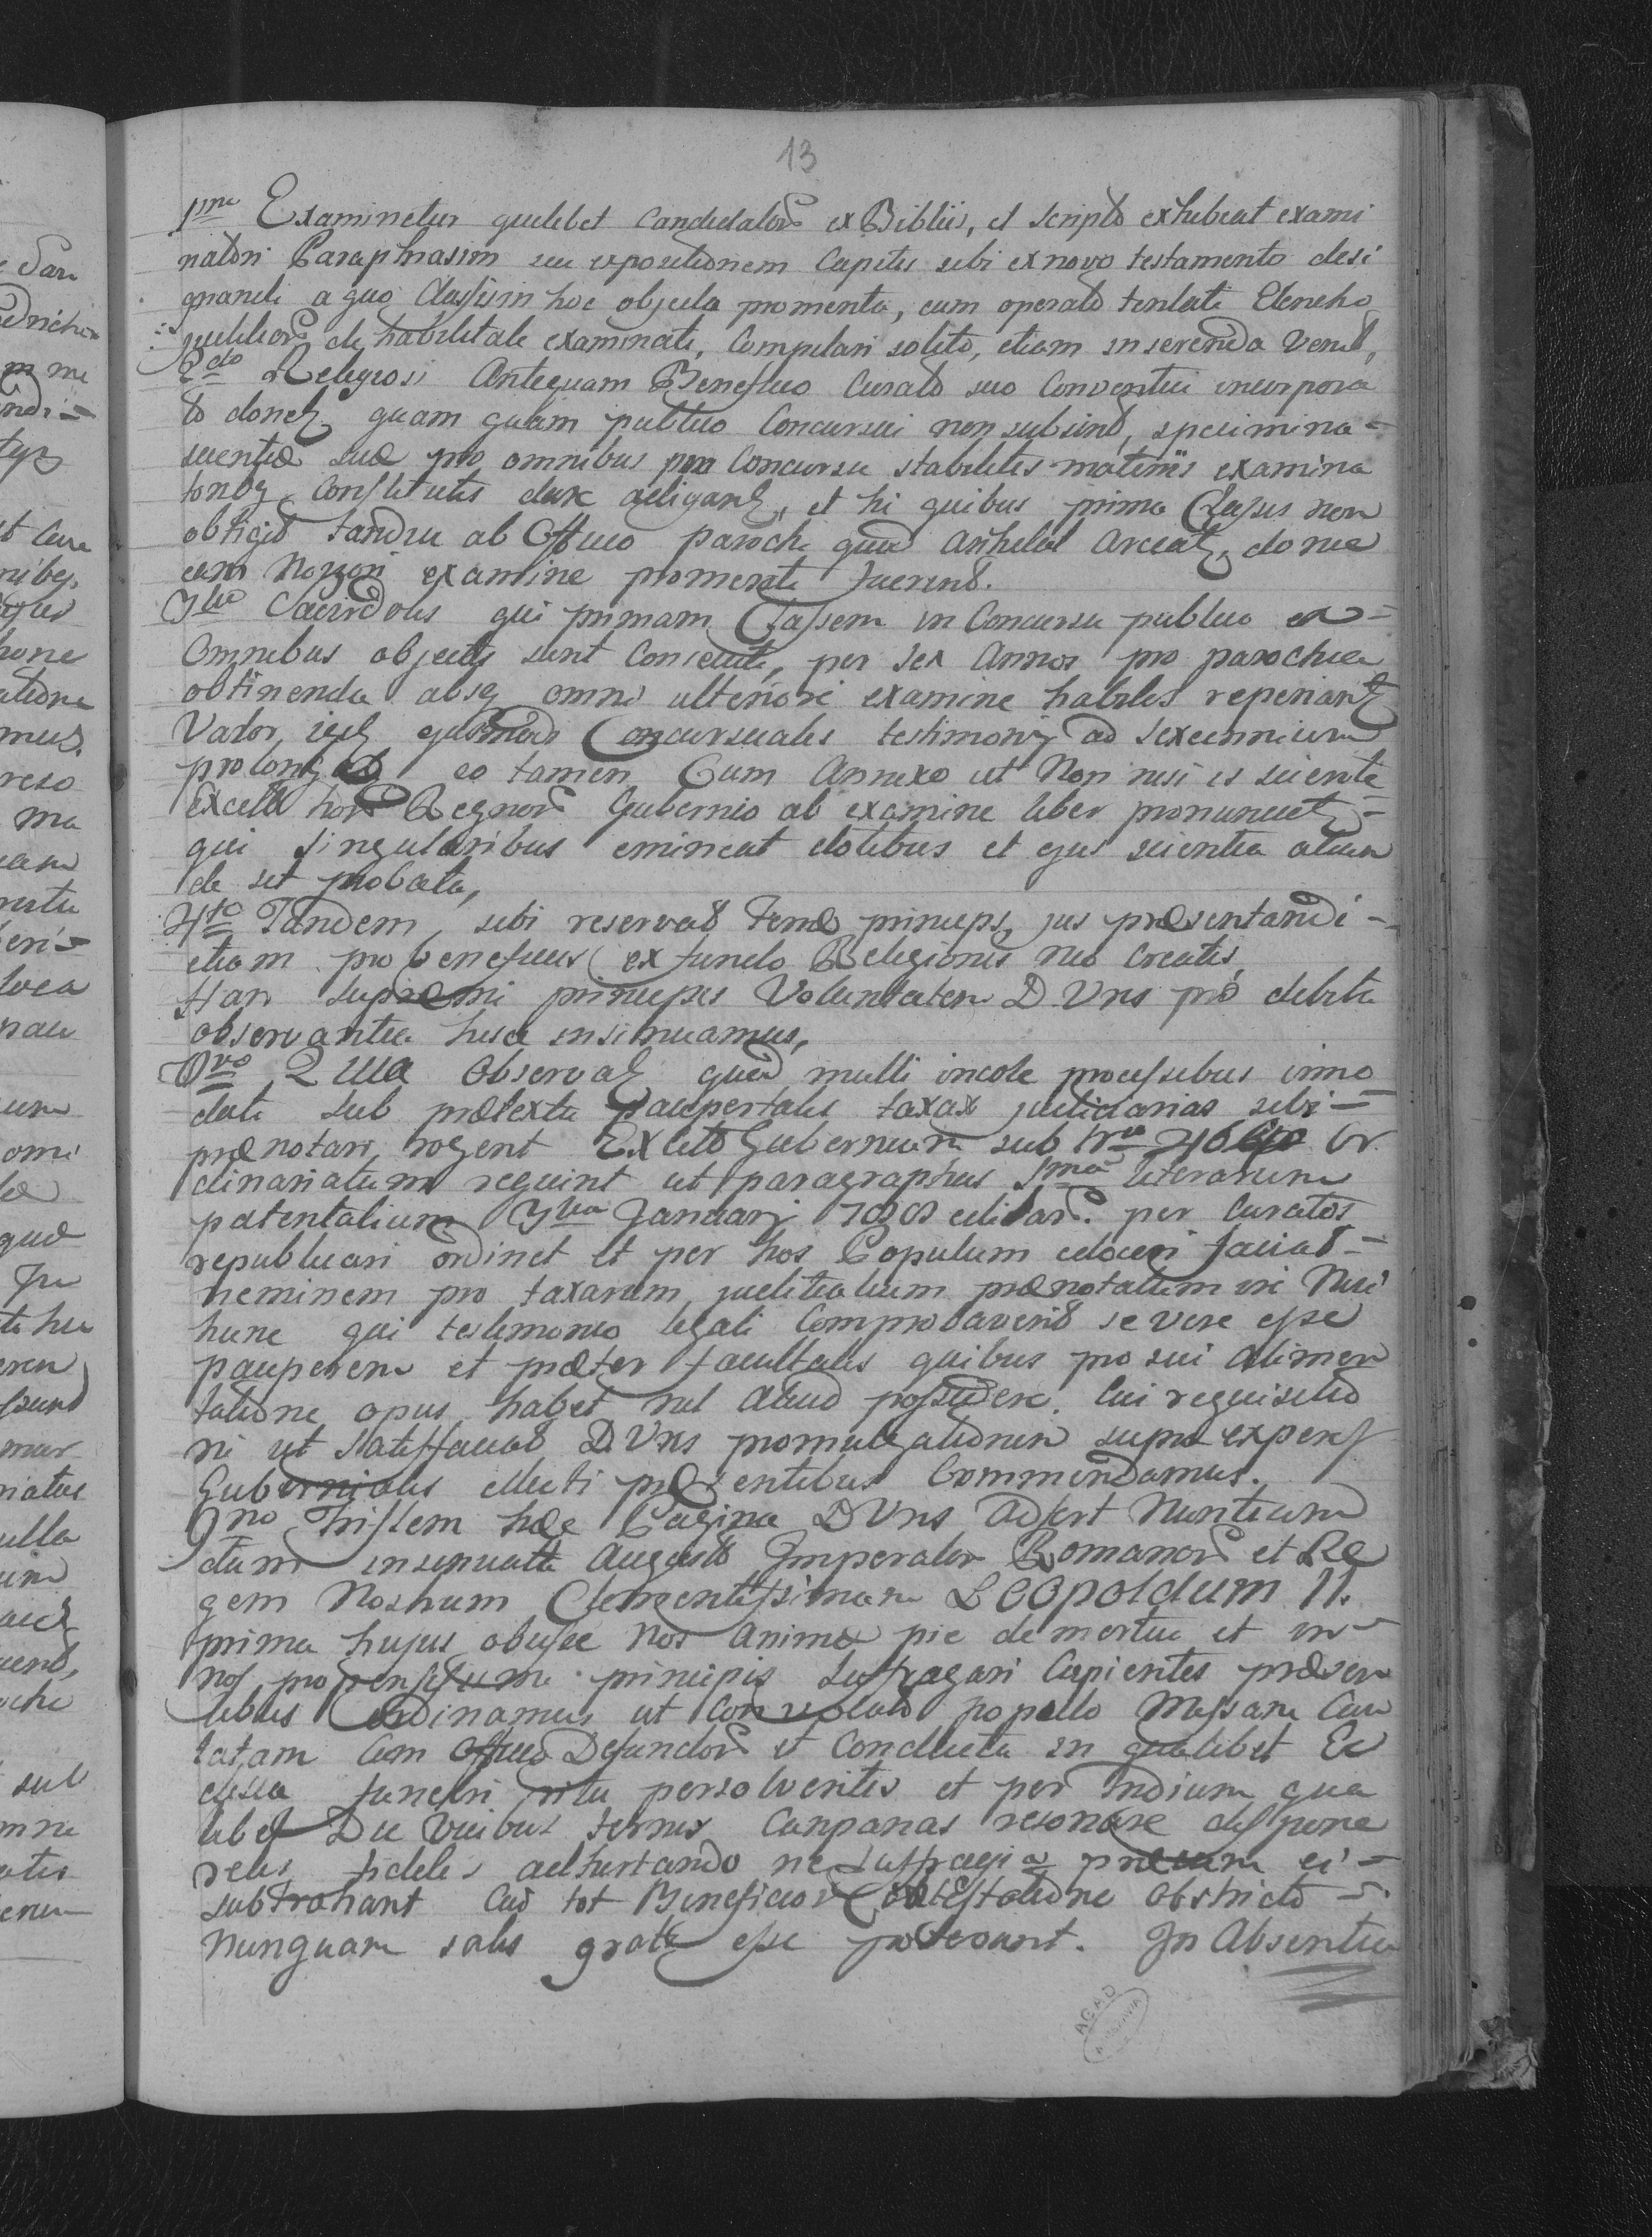 13
1mo Examinetur quilibet Candidator ex Bibliis, et scripto exhibeat exami
natori Paraphrasim seu expositionem Capitis sibi ex novo testamento desi
gnandi a quo Classium hoc objecta promenta, cum operato tentati Elencho
judicior de habilitate examinati, Compilari solito, etiam inserenda venit,
2do Religiosi Antequam Beneficio Curato suo Conventui incorpora
to donec quam publico Concursui non subint, specimina =
scientiæ suæ pro omnibus pro Concursu stabilitis materiis examina
torib constitutis dare adigant, et hi quibus prima Classis non
obtigit tandiu ab Officio parochi quod anhelat Arceat, donec
eam Novori examine promeriti fuerint.
3tio Sacerdotes qui primam Classem in Concursu publico ex =
Omnibus objectis sunt Consecuti, per sex Annos pro parochia
obtinenda absq omni ulteriori examine habiles reperiant
Valor, ejusmodi Concursualis testimonij ad sexennium
prolong eo tamen Cum Annexo ut Non nisi is sciente
Excelso horum Regnor Gubernio ab examine liber pronunciet =
qui singularibus emineat dotibus et ejus scientia aliun
de sit probata,
4to Tandem sibi reservat Terræ princeps, jus præsentandi -
etiam pro beneficiis ex fundo Religionis neo Creatis
Han supremi principis Voluntatem D Vris pro debita
observantia hisce insinuamus,
8vo Quia Observat quod multi incolæ processibus immo
dati sub prætextu paupertatis taxas judiciarias sibi =
prænotari rogent Excelso Gubernium sub Nro Or
dinariatum requirit ut paragraphus 1ma literarum
patentalium 3tia Januarij editar. per Curatos
republicari ordinet et per hos Populum edoceri faciat =
neminem pro taxarum judicialium prænotatum iri Nisi
hunc qui testimonio legali Comprobaverit se vere esse
pauperem et præter facultates quibus pro sui Alimen
tatione opus habet nil Aliud possidere. Cui requisitio
ni ut Satisfaciat D Vris promulgationem supra express
Gubernialis edicti præsentibus Commendamus.
9no Tristem hæc Pagina D Vris Adfert Nuntium
dum insinuat Augusto Imperator Romanor et Re
gem Nostrum Clementissimum Leopoldum II.
prima hujus obiisse Nos animæ pie demortui et in =
nos propensissimi principis Suffragari Cupientes præsen
tibus Ordinamus ut Convocato popullo Missam Can
tatam Cum Officio Defunctor et Conductu in qualibet Ec
clesia funebri ritu persolventes et per triduum qua
libet Die Vicibus ternis Campanas resonare dispone
retis fideles adhortando ne suffragia precum ei =
subtrahant Cui tot Beneficior Contestatione Obstricti =
Nunquam satis grati esse poterunt. In Absentia
AGAD